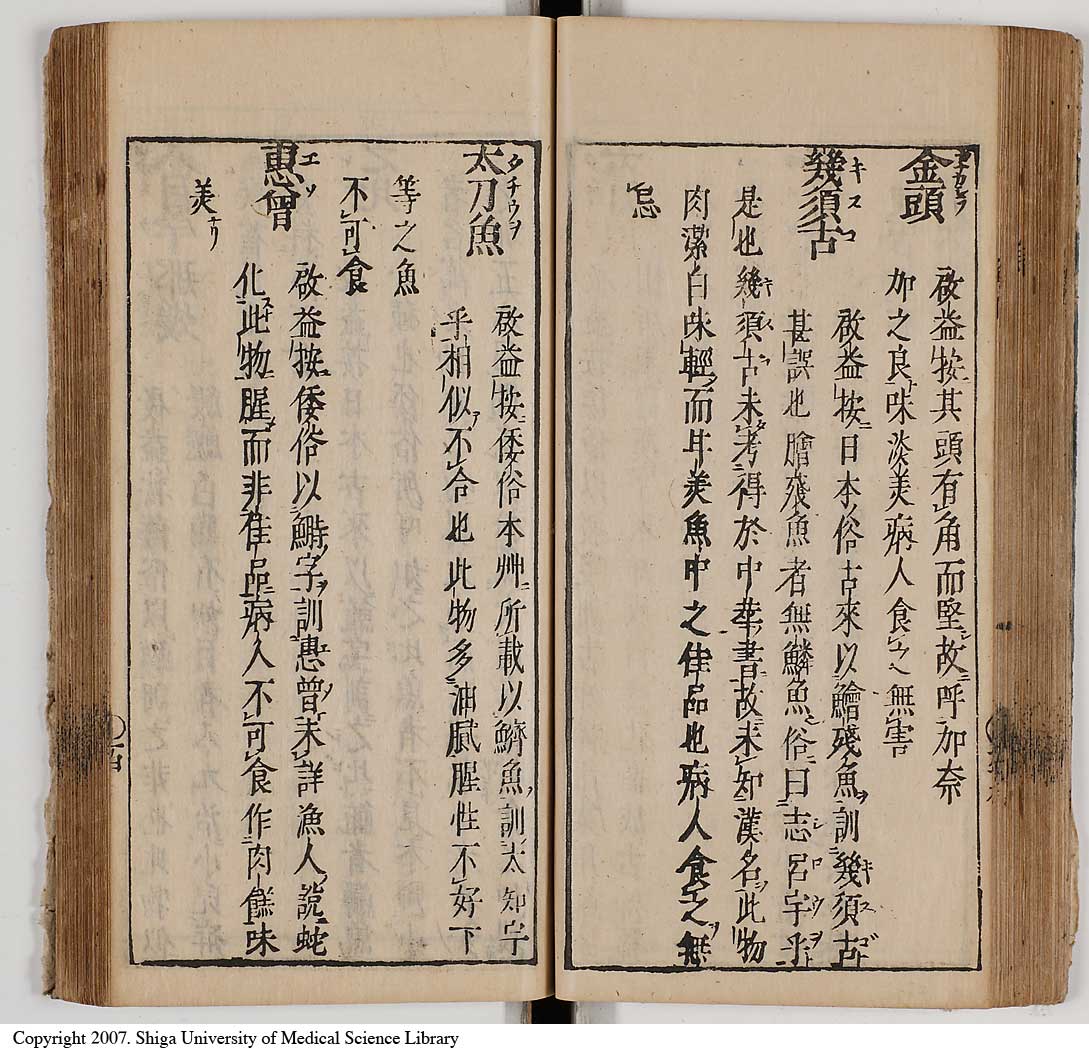 金頭
啟益按其頭有角而堅故呼加奈
加之良味淡美病人食之無害
幾須古
啟益按日本俗古來以鱠殘魚訓幾須古
甚誤也膾殘魚者無鱗魚俗曰志呂宇乎
是也幾須古未考得於中華書故未知漢名此物
肉潔白味輕而甘美魚中之佳品也病人食之無
忌
太刀魚
啟益按倭俗本艸所載以鱭魚訓太知宇
乎相似不合也此物多油膩腥性不好下
等之魚
不可食
恵曾
啟益按倭俗以鰣字訓恵曾未詳漁人說蛇
化此物腥而非佳品病人不可食作肉餻味
美ナリ
Copyright 2007. Shiga University of Medical Science Library